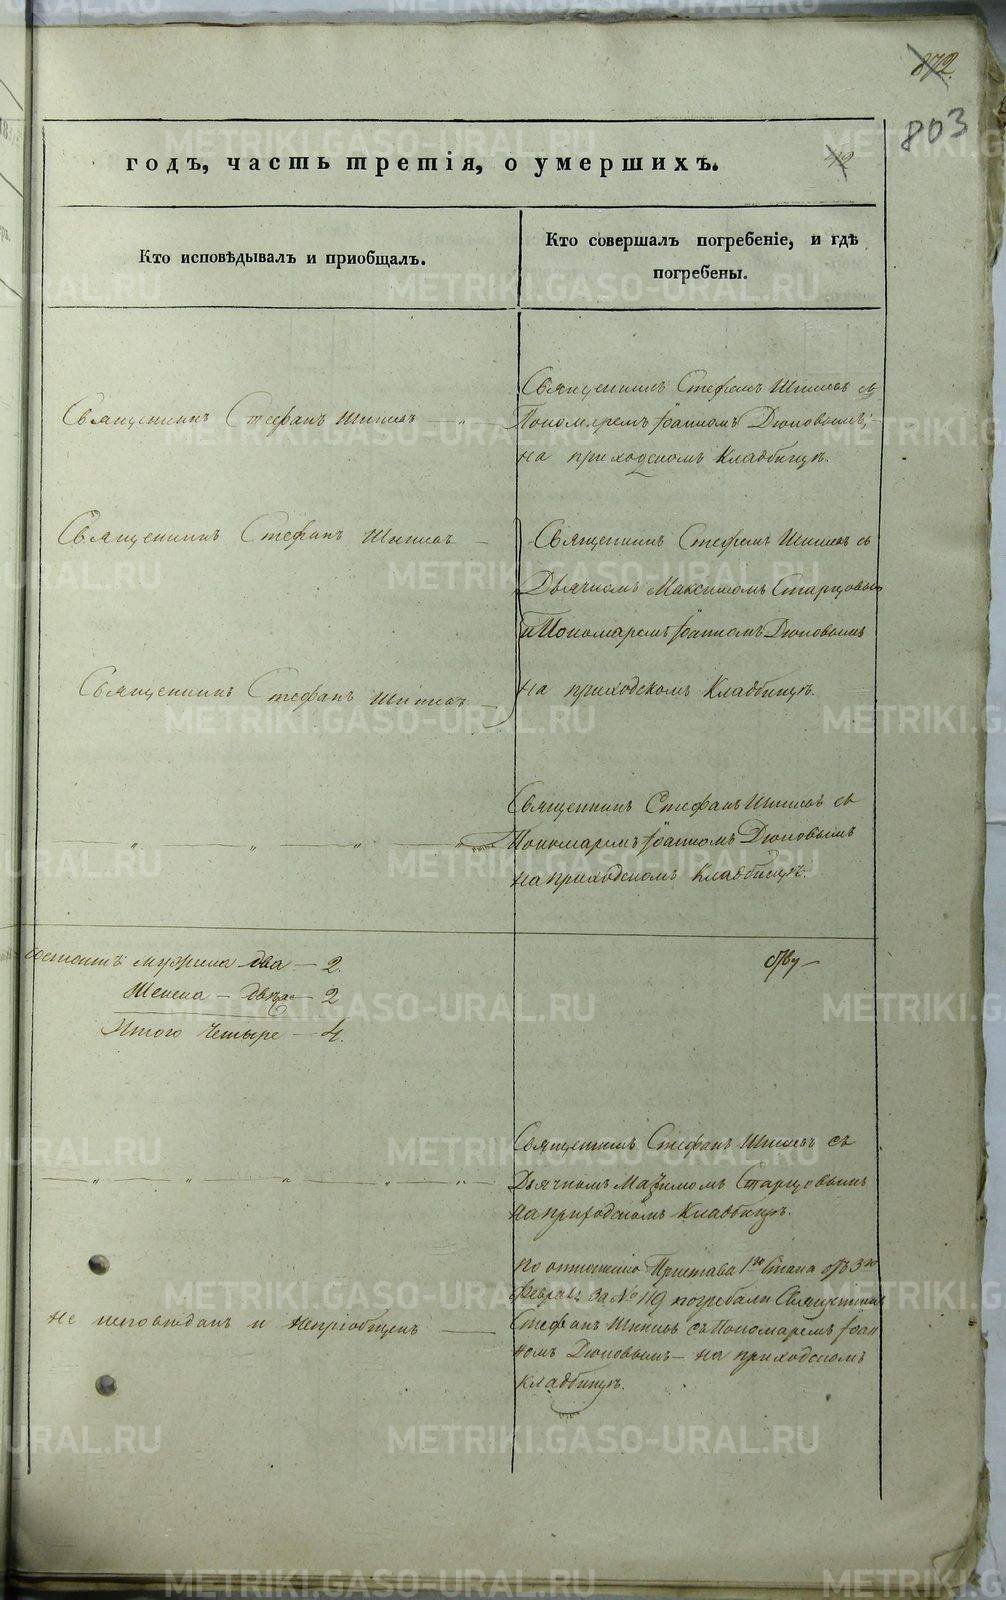 872.
803
годъ, часть третія, о умершихъ.
42
Кто исповѣдывалъ и пріобщалъ.
Кто совершалъ погребеніе, и гдѣ
погребены.
Священникъ Стефанъ
Священникъ Стефанъ съ
Пономаремъ Іоанномъ Дюковымъ,
на приходскомъ Кладбищѣ.
Священникъ Стефанъ
Священникъ Стефанъ съ
Дьячкомъ Максимомъ Старцовымъ
и Пономаремъ Іоанномъ Дюковымъ
Священникъ Стефанъ
на приходскомъ Кладбищѣ.
Священникъ Стефанъ съ
Пономаремъ Іоанномъ Дюковымъ
на приходскомъ Кладбищѣ.
мужеска два — 2.
Женска — двѣ — 2
Итого четыре — 4.
Священникъ Стефанъ съ
Дьячкомъ Максимомъ Старцовымъ
на приходскомъ Кладбищѣ.
по отношенію Пристава 1го Стана отъ 3го
Февраля за № 119 погребали Священникъ
не исповѣданъ и непріобщенъ
Стефанъ съ Пономаремъ Іоан
номъ Дюковымъ — на приходскомъ
кладбищѣ.
METRIKI.GASO-URAL.RU